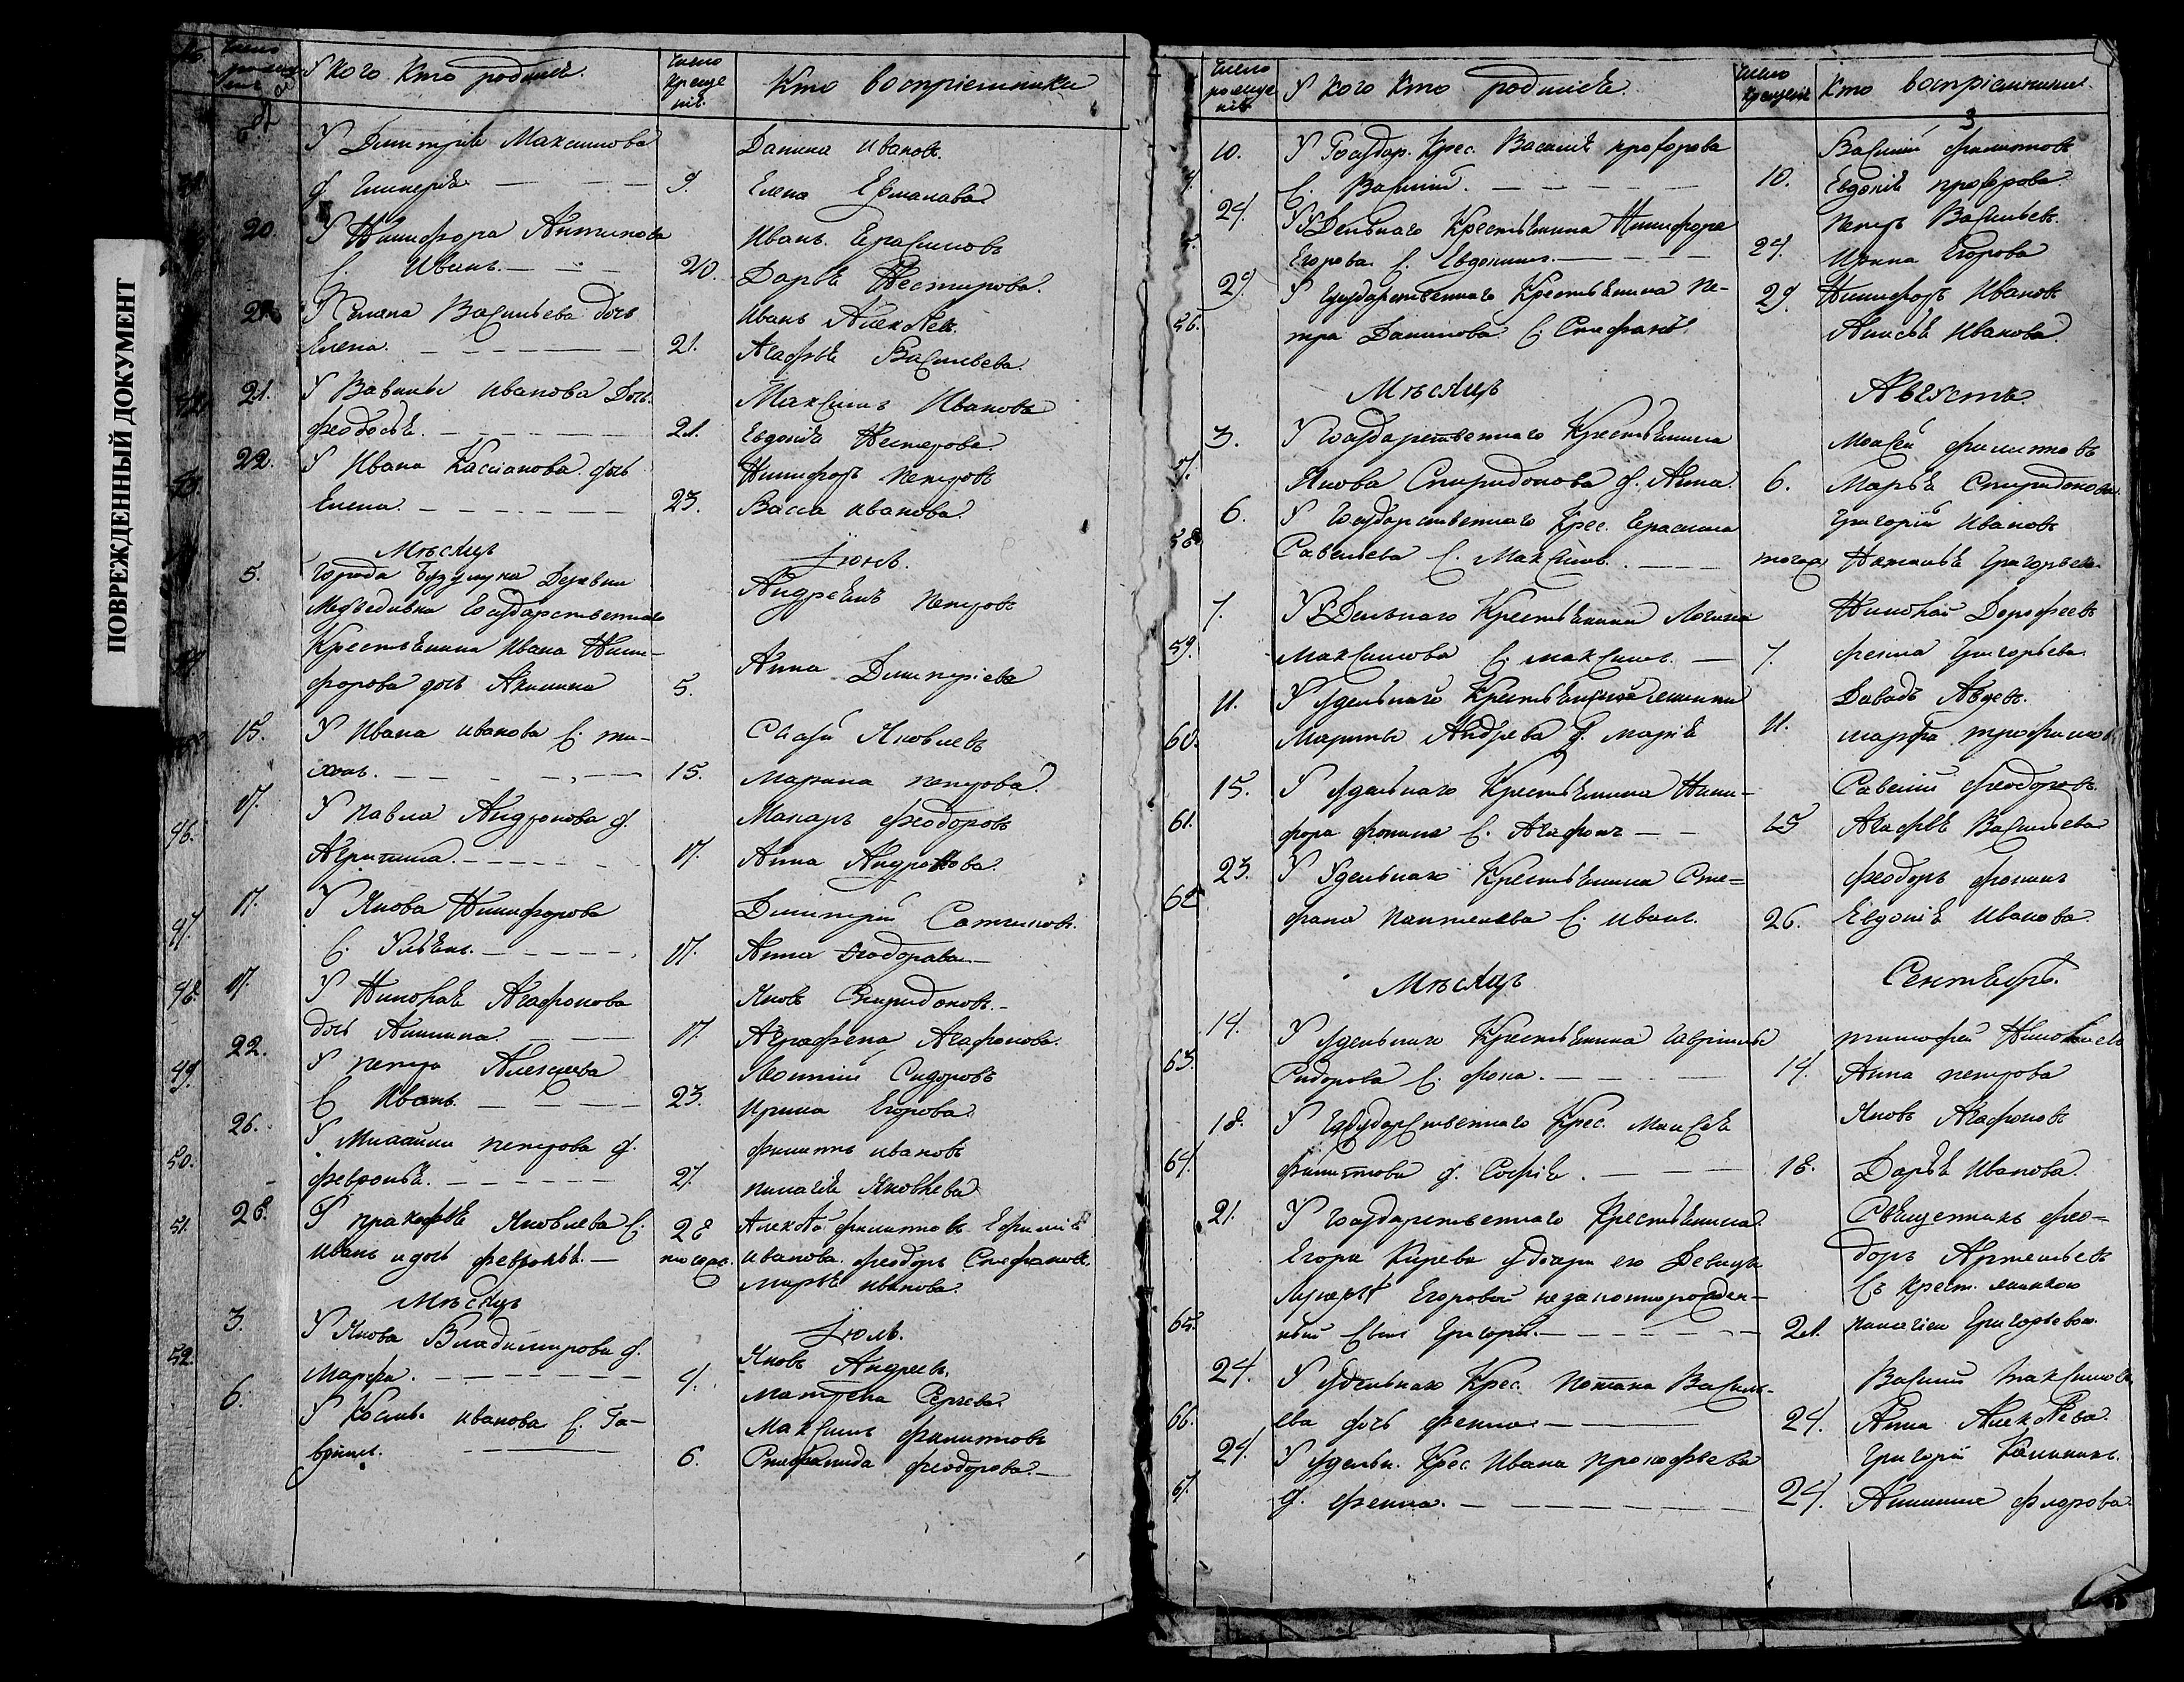 ПОВРЕЖДЕННЫЙ ДОКУМЕНТ
№
Число рожде
У кого кто родился.
Число Креще нiя.
Кто воспрiемники
У Димитрiя Максимова
д. Гликерiя. 9.
Данила Иванов.
Елена
20. У Никифора Антипова
С. Иванъ. 20.
Иванъ Герасимовъ
Дарья Нестирова.
21. У Семена Васильева дочь
Елена. 21.
Иванъ Алексѣев.
Агафья Васильева.
21. У Вавилы Иванова Дочь.
Феодосья. 21.
Максимъ Ивановъ
Евдокiя Нестерова.
22. У Ивана Касiанова дочь
Елена. 23.
Никифоръ Петровъ
Васса Иванова.
Мѣсяцъ Iюнь.
5. Города Бузулука Деревни
Медведивки Государственнаго
Крестьянина Ивана Ники-
форова дочь Акилина 5.
Андреянъ Петровъ
Анна Димитрiева
15. У Ивана Иванова С. Ти-
хонъ. 15.
Яковлевъ
Марина Петрова.
46. 17. У Павла Андронова д.
Агрипина. 17.
Макаръ Феодоровъ
Анна Андронова.
47. 17. У Якова Никифорова
С. Ульянъ. 17.
Димитрiй
Анна Феодорова
48. 17. У Николая Агафонова
дочь Акилина. 17.
Яковъ Спиридоновъ.
Аграфена Агафонова.
49. 22. У Петра Алексеева
С. Иванъ. 23.
Леонтiй Сидоровъ
Ирина Егорова.
50. 26. У Михайлы Петрова д.
Февронья. 27.
Филиппъ Ивановъ
Пелагiя Яковлева
51. 28. У Пракофья Яковлева С.
Иванъ и дочь Февронья. 28 того ж.
Алексѣй Филиповъ Ефимiя
Иванова. Феодоръ Стефановъ.
Марья Иванова.
Мѣсяцъ Iюль.
52. 3. У Якова Владимирова д.
Марфа. 4.
Яковъ Андреевъ.
Матрена Сергева.
6. У Космы Иванова С. Га-
врiилъ. 6.
Максимъ Филиповъ
Степанида Феодорова.
Число рожде нiя
У кого кто родился.
Число Крещенiя
Кто воспрiемники.
3
10. У Государ. Крес. Василiя Прохорова
С. Василiй. 10.
Василiй Филиповъ
Евдокiя Прохорова.
24. У Удельнаго Крестьянина Никифора
Егорова С. Евдокимъ. 24.
Петръ Васильевъ.
Ирина Егорова
56. 29. У Государственнаго Крестьянина Пе-
тра Данилова С. Стефанъ. 29.
Никифоръ Ивановъ
Анисья Иванова.
Мѣсяцъ Августъ.
57. 3. У Государственнаго Крестьянина
Якова Спиридонова д. Анна 6.
Моисей Филиповъ
Марья Спиридонова
58. 6. У Государственнаго Крес. Герасима
Савельева С. Максимъ. того ж
Григорiй Ивановъ
Наталья Григорьева
59. 7. У Удельнаго Крестьянина Логина
Максимова С. Максимъ. 7.
Николай Дорофеевъ
Фекла Григорьева
60. 11. У Удельнаго Крестьянской
Марты Андрева д. Марiя 11.
Давыдъ Авдеев.
Марфа Трофимова.
61. 15. У Удельнаго Крестьянина Ники-
фора Фомина С. Агафонъ 15
Савелiй Феодоровъ.
Агафья Васильева
62 23. У Удельнаго Крестьянина Сте=
фана Пантелева С. Иванъ. 26.
Феодоръ Фоминъ
Евдокiя Иванова.
Мѣсяцъ Сентябрь.
63. 14. У Удельнаго Крестьянина Гаврiилы
Сидорова С. Фока. 14.
Тимофей Николаевъ
Анна Петрова
64. 18. У Государственнаго Крес. Моисея
Филипова д. Софiя. 18.
Яковъ Агафоновъ
Дарья Иванова.
65. 21. У Государственнаго Крестьянина
Егора Кирева у дочери его Девицы
Лукерьи Егоровой незаконнорожден-
ный сынъ Григорiй. 21.
Священникъ Фео=
доръ Артемьевъ
Съ Крест. женкою
Пелагiею Григорьевою.
66. 24. У Удельнаго Крес. Потапа Василь-
ева дочь Фекла. 24.
Василiй Максимовъ
Анна Алексѣева.
67. 24. У Удельн. Крес. Ивана Прокофьева
д. Фекла. 24.
Григорiй Калининъ.
Акилина Фидрова.